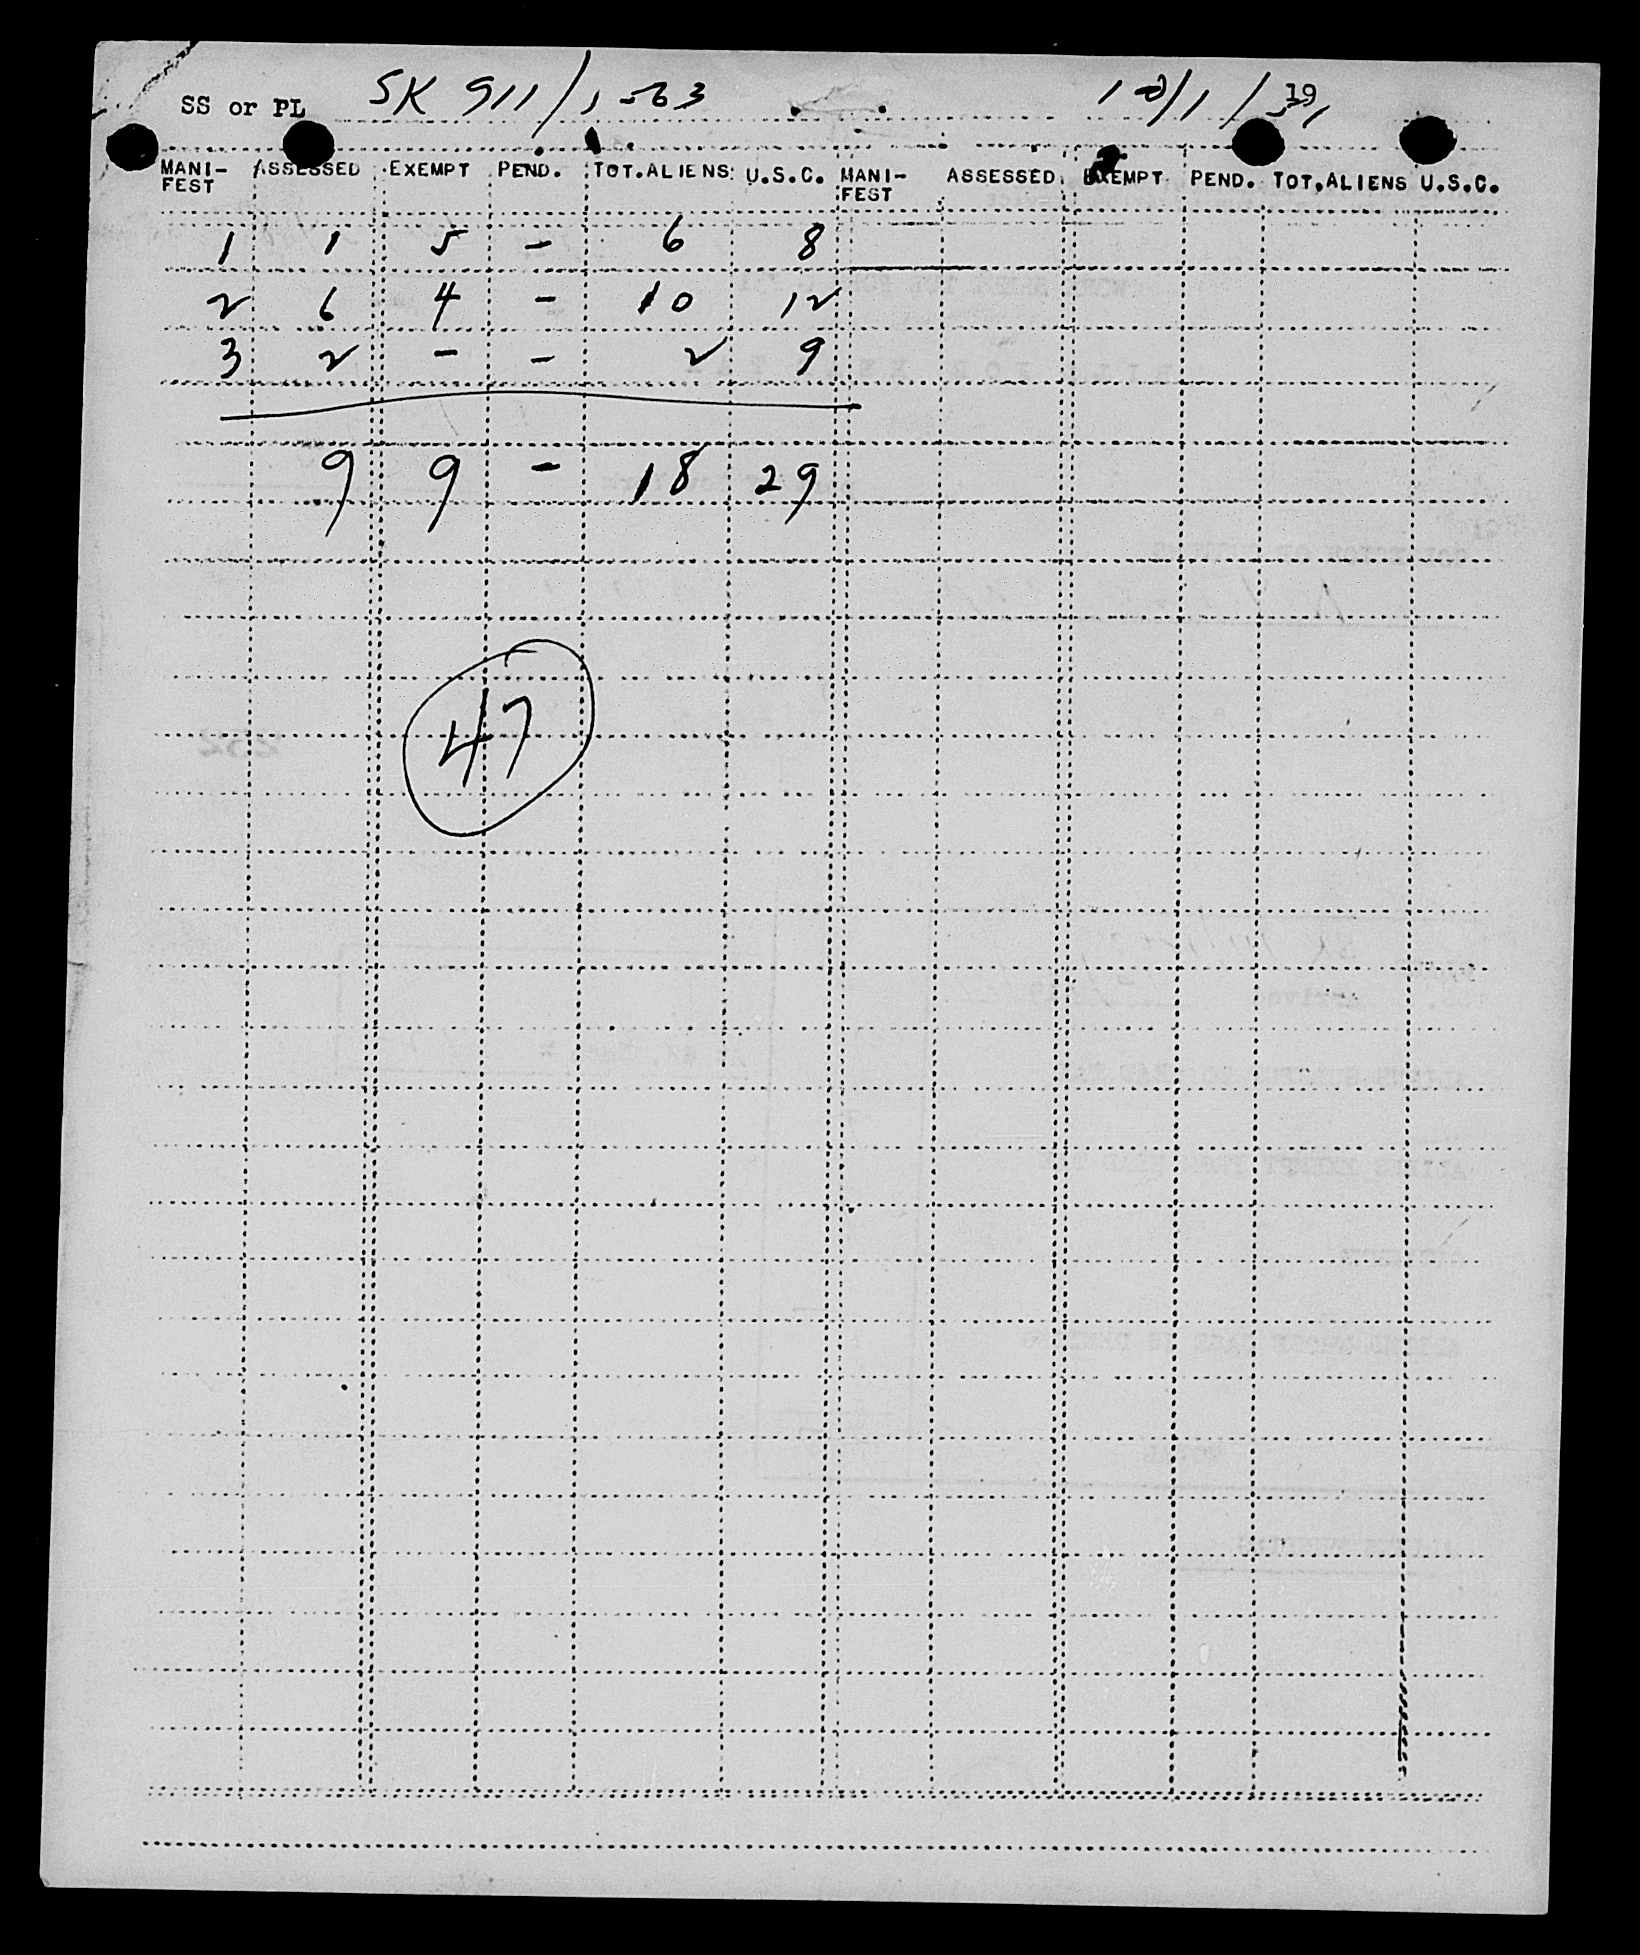 SS or PL SK 911/1-63 10/1/1951
MANI-FEST ASSESSED EXEMPT PEND. TOT.ALIENS U.S.C. MANI-FEST ASSESSED EXEMPT PEND. TOT.ALIENS U.S.C.
1 1 5 - 6 8
2 6 4 - 10 12
3 2 - - 2 9
9 9 - 18 29
47